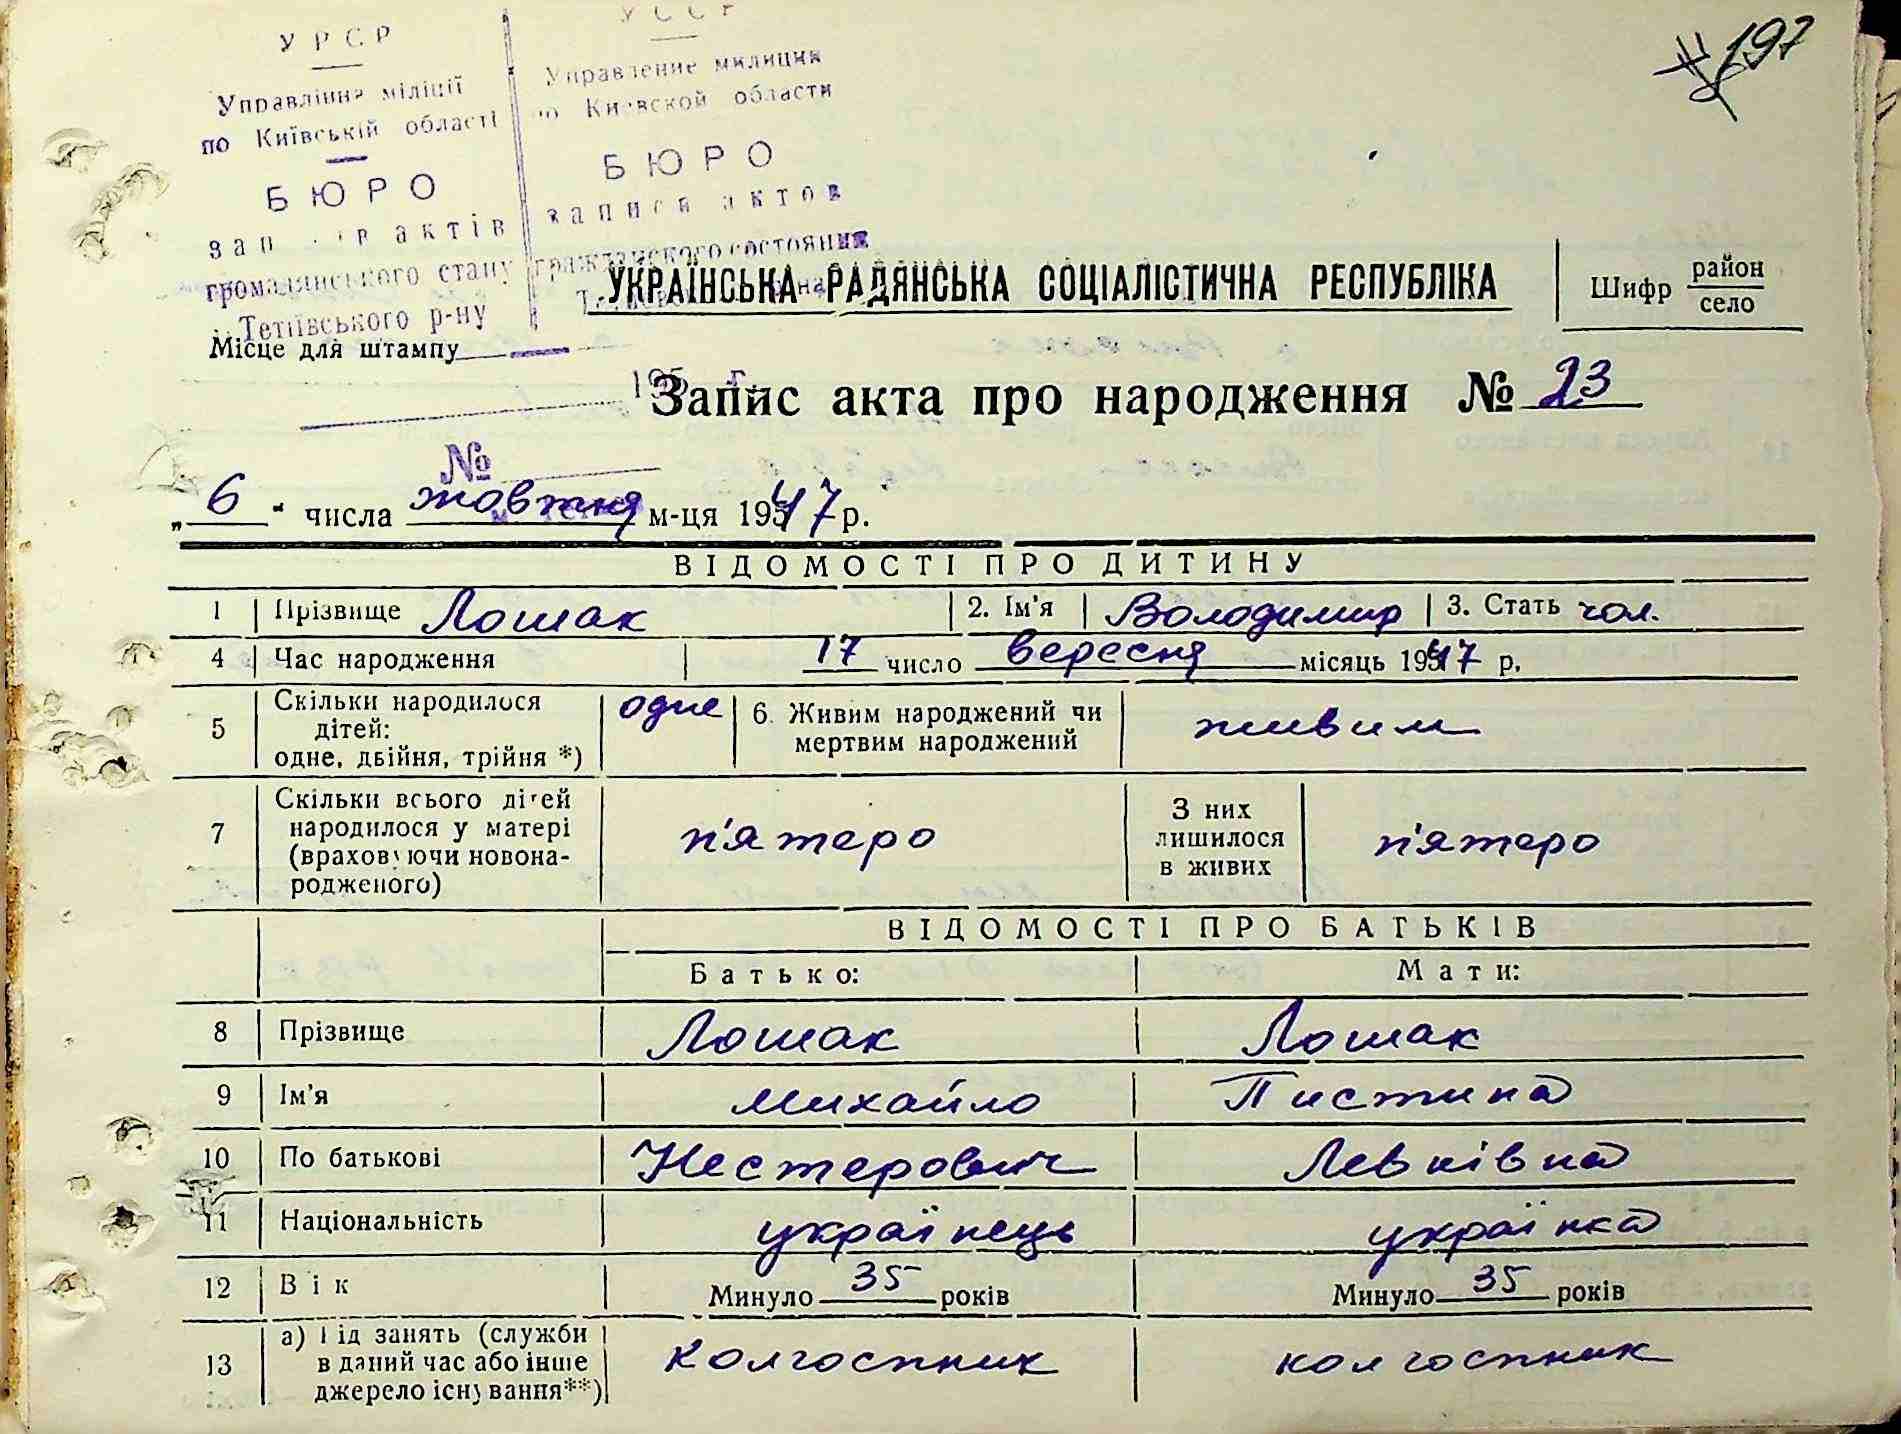 197
УРСР
Управління міліції
по Київській області
БЮРО
актів
громадянського стану
Тетіївського р-ну
УССР
Управление милиции
по Киевской области
БЮРО
записи актов
гражданского состояния
Місце для штампу
195 г.
№
УКРАЇНСЬКА РАДЯНСЬКА СОЦІАЛІСТИЧНА РЕСПУБЛІКА
Шифр район
село
Запис акта про народження № 23
„6“ числа жовтня м-ця 1947 р.
ВІДОМОСТІ ПРО ДИТИНУ
1 Прізвище Лошак 2. Ім'я Володимир 3. Стать чол.
4 Час народження 17 число вересня місяць 1947 р.
5 Скільки народилося дітей: одне, двійня, трійня *) одне 6. Живим народжений чи мертвим народжений живим
7 Скільки всього дітей народилося у матері (враховуючи новонародженого) п'ятеро З них лишилося в живих п'ятеро
ВІДОМОСТІ ПРО БАТЬКІВ
Батько: Мати:
8 Прізвище Лошак Лошак
9 Ім'я Михайло Пистина
10 По батькові Нестерович Левківна
11 Національність українець українка
12 Вік Минуло 35 років Минуло 35 років
13 а) Під занять (служби в даний час або інше джерело існування**) колгоспник колгоспник